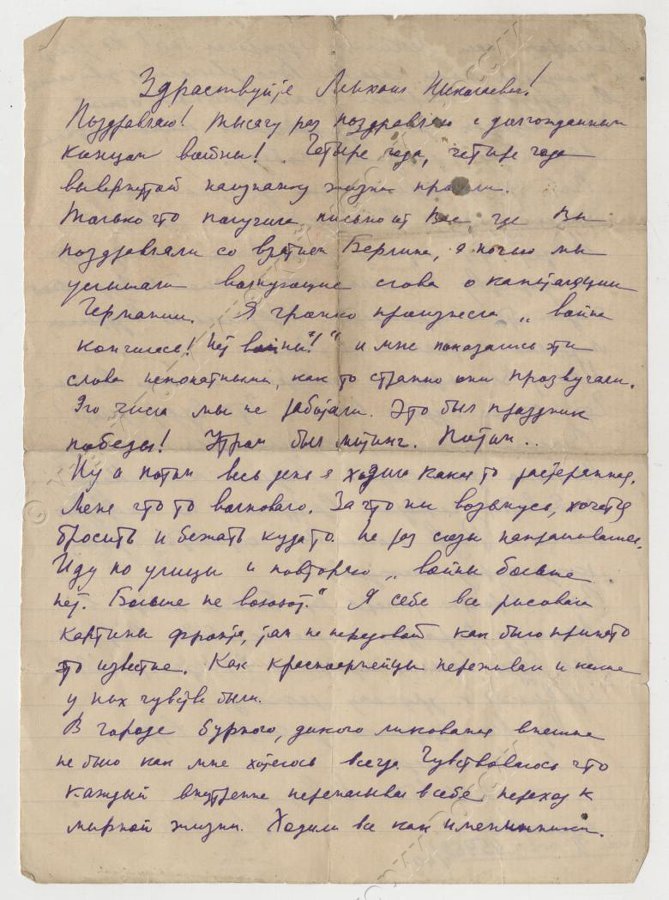 Здраствуйте Михаил Николаевич!
Поздравляю! Тысячу раз поздравляю с долгожданным
концом войны! Четыре года, четыре года
вывернутой наизнанку жизни прошли.
Только что получила письмо от Вас, где Вы
поздравляли со взятием Берлина, а ночью мы
услышали волнующие слова о капитуляции
Германии. Я громко произнесла „война
кончилась! Нет войны!" и мне показались эти
слова непонятными, как то странно они прозвучали.
9го числа мы не работали. Это был праздник
победы! Утром был митинг. Потом..
Ну а потом весь день я ходила какая то растерянная.
Меня что то волновало. За что ни возьмусь, хочется
бросить и бежать куда то. Не раз слезы напрашивались.
Иду по улицы и повторяю „войны больше
нет. Больше не воюют." Я себе все рисовала
картины фронта, там на передовой как было принято
это известие. Как красноармейцы переживали и какие
у них чувства были.
В городе бурного, дикого ликования внешне
не было как мне хотелось всегда Чувствовалось что
каждый внутренне переживал в себе переход к
мирной жизни. Ходили все как именинники.